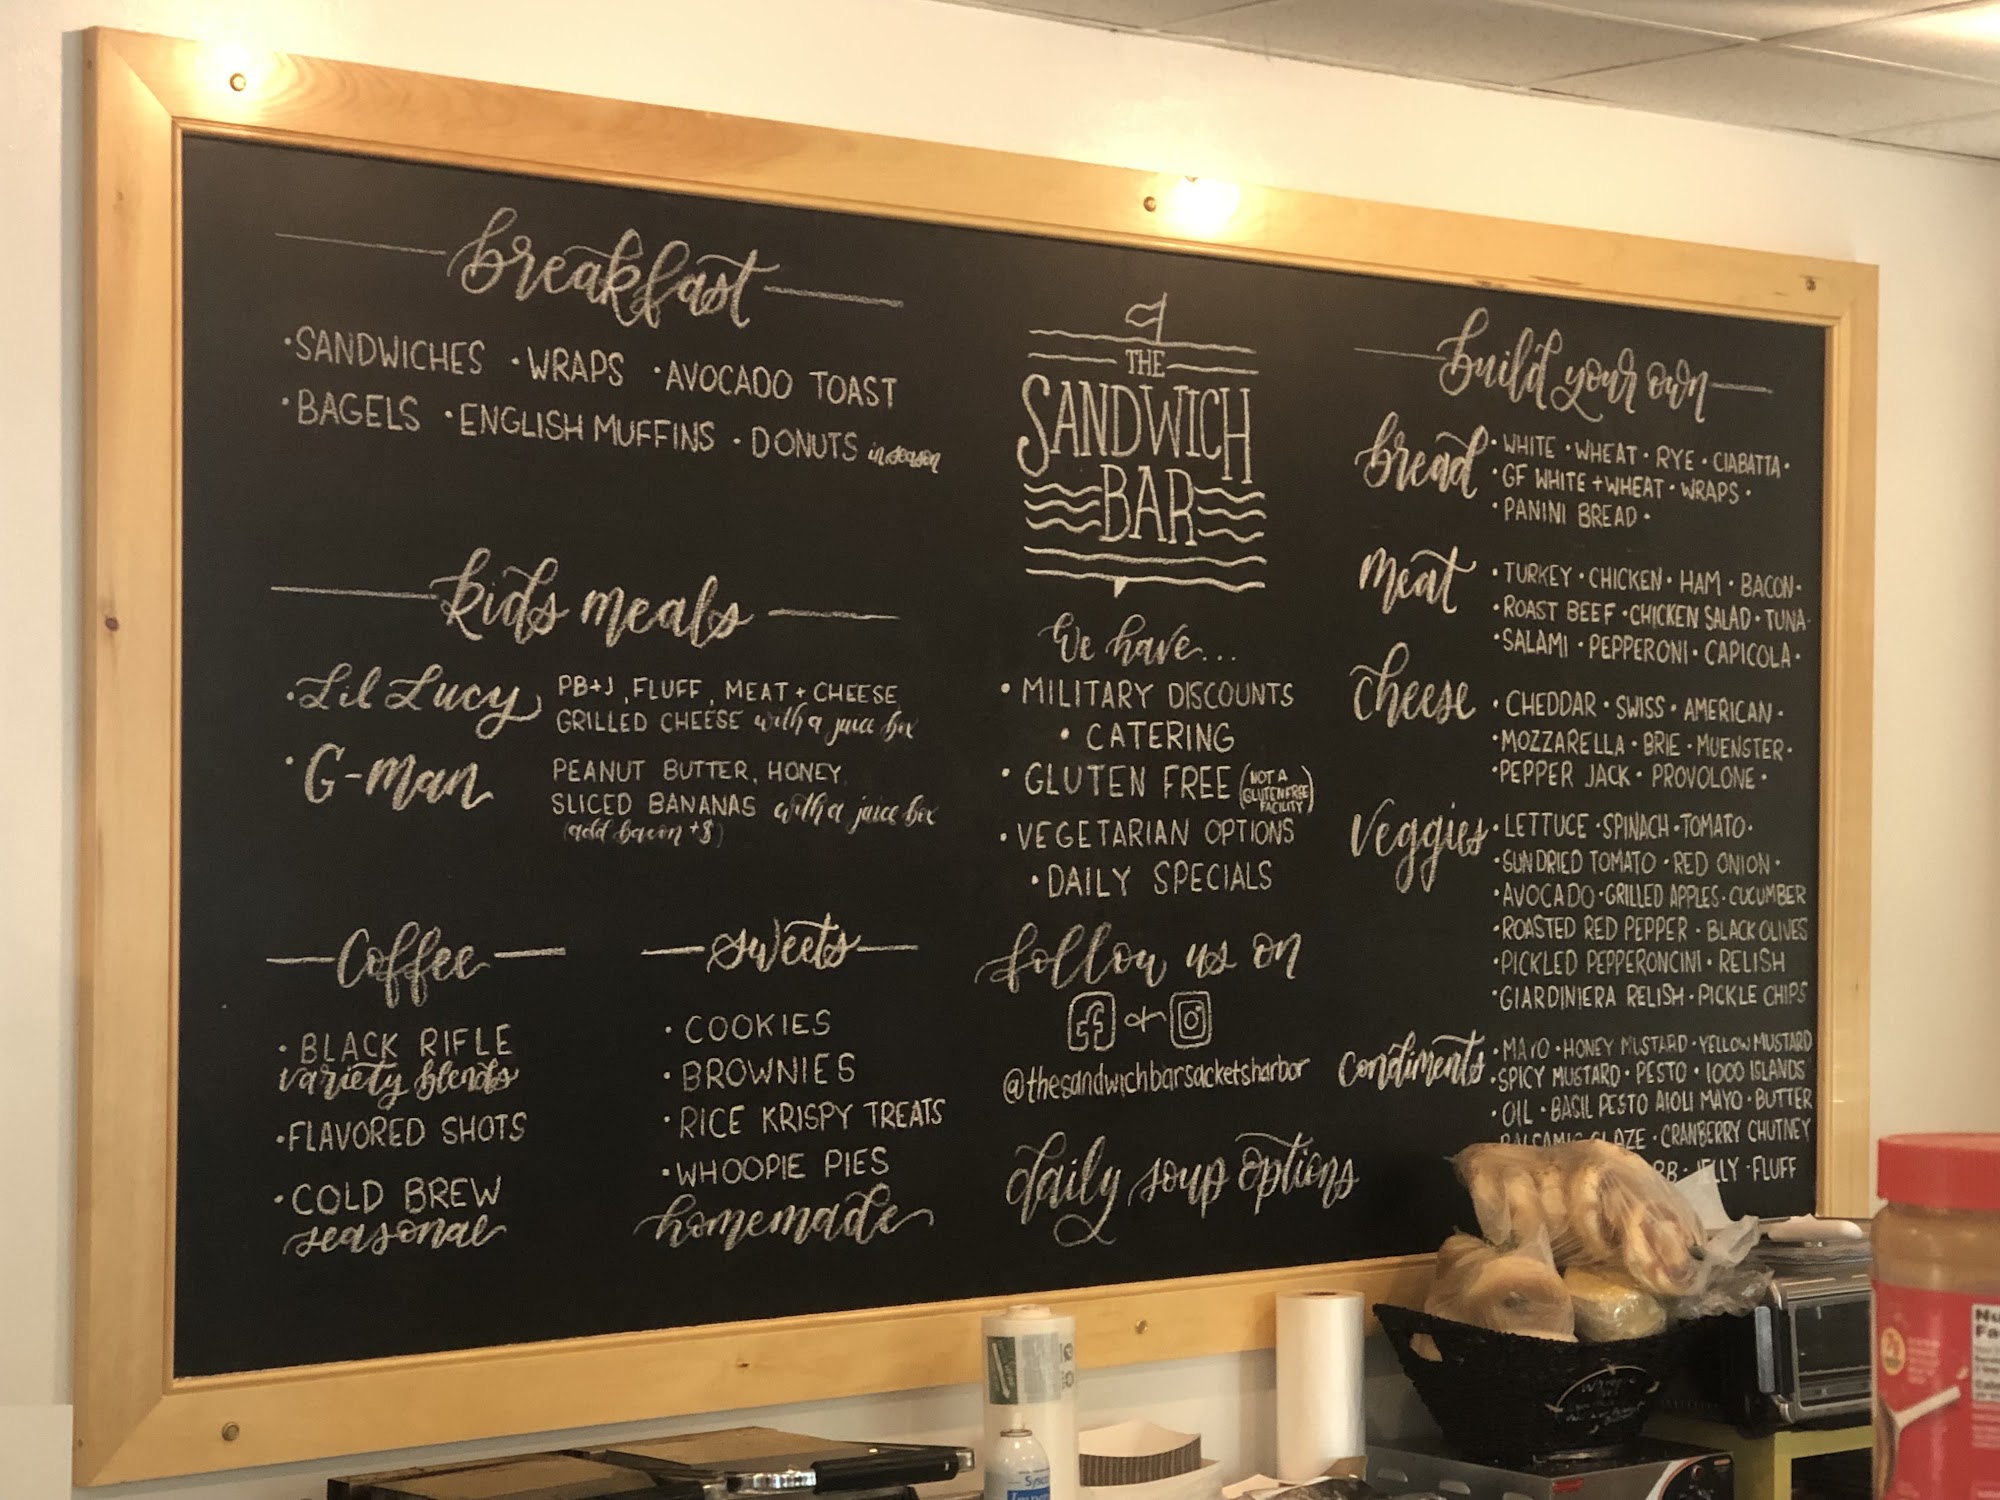 breakfast
• SANDWICHES • WRAPS • AVOCADO TOAST
• BAGELS • ENGLISH MUFFINS • DONUTS in season
kids meals
• Lil Lucy PB+J, FLUFF, MEAT + CHEESE
GRILLED CHEESE with a juice box
• G-man PEANUT BUTTER, HONEY,
SLICED BANANAS with a juice box
(add bacon +$)
Coffee
• BLACK RIFLE
variety blends
• FLAVORED SHOTS
• COLD BREW
seasonal
sweets
• COOKIES
• BROWNIES
• RICE KRISPY TREATS
• WHOOPIE PIES
homemade
THE
SANDWICH
BAR
We have...
• MILITARY DISCOUNTS
• CATERING
• GLUTEN FREE (NOT A GLUTEN FREE FACILITY)
• VEGETARIAN OPTIONS
• DAILY SPECIALS
follow us on
f or
@thesandwichbarsacketsharbor
daily soup options
build your own
bread • WHITE • WHEAT • RYE • CIABATTA •
• GF WHITE + WHEAT • WRAPS •
• PANINI BREAD •
meat • TURKEY • CHICKEN • HAM • BACON •
• ROAST BEEF • CHICKEN SALAD • TUNA •
• SALAMI • PEPPERONI • CAPICOLA •
cheese • CHEDDAR • SWISS • AMERICAN •
• MOZZARELLA • BRIE • MUENSTER •
• PEPPER JACK • PROVOLONE •
veggies • LETTUCE • SPINACH • TOMATO •
• SUNDRIED TOMATO • RED ONION •
• AVOCADO • GRILLED APPLES • CUCUMBER
• ROASTED RED PEPPER • BLACK OLIVES
• PICKLED PEPPERONCINI • RELISH
• GIARDINIERA RELISH • PICKLE CHIPS
condiments • MAYO • HONEY MUSTARD • YELLOW MUSTARD
• SPICY MUSTARD • PESTO • 1000 ISLANDS
• OIL • BASIL PESTO AIOLI MAYO • BUTTER
BALSAMIC GLAZE • CRANBERRY CHUTNEY
PB • JELLY • FLUFF